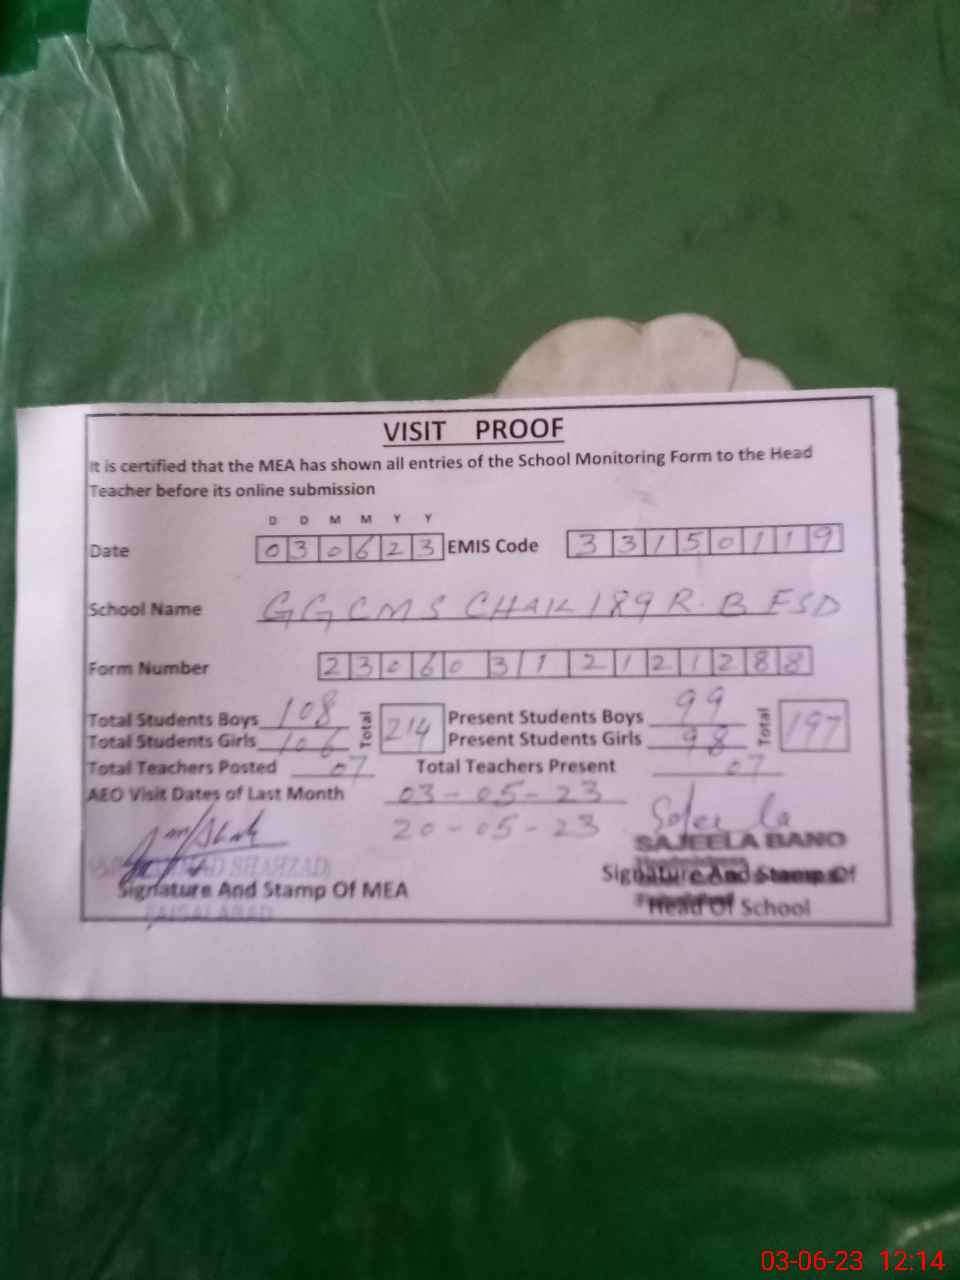 VISIT PROOF
It is certified that the MEA has shown all entries of the School Monitoring Form to the Head
Teacher before its online submission
D D M M Y Y
Date 030623 EMIS Code 33150119
School Name GGCMS CHAK 189 R.B FSD
Form Number 23060311212128 8
Total Students Boys 108 Total 214 Present Students Boys 99 Total 197
Total Students Girls 106 Present Students Girls 98
Total Teachers Posted 07 Total Teachers Present 07
AEO Visit Dates of Last Month 03-05-23
20-05-23
SAJEELA BANO
SHAHZAD
Signature And Stamp Of MEA Signature And Stamp Of
FAISALABAD Head Of School
03-06-23 12:14